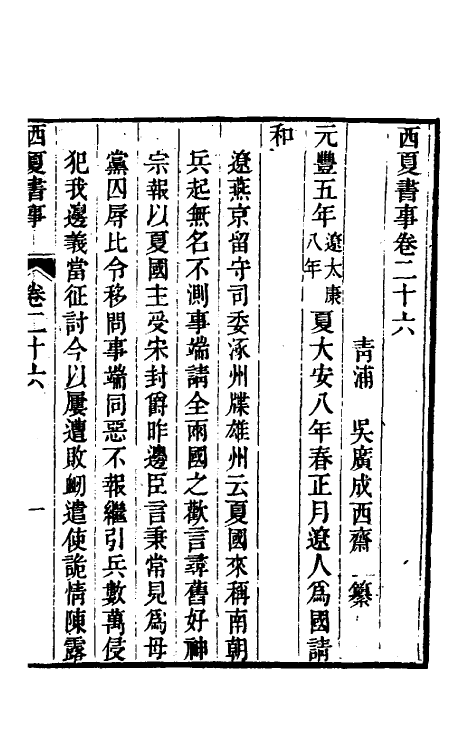 西夏書事卷二十六
青浦 吳廣成西齋 纂
元豐五年遼太康八年夏大安八年春正月遼人為國請
和
遼燕京留守司委涿州牒雄州云夏國來稱南朝
兵起無名不測事端請全兩國之歡言尋舊好神
宗報以夏國主受宋封爵昨邊臣言秉常見為母
黨囚辱比令移問事端同惡不報繼引兵數萬侵
犯我邊義當征討今以屢遭敗衂遣使詭情陳露
西夏書事 卷二十六 一